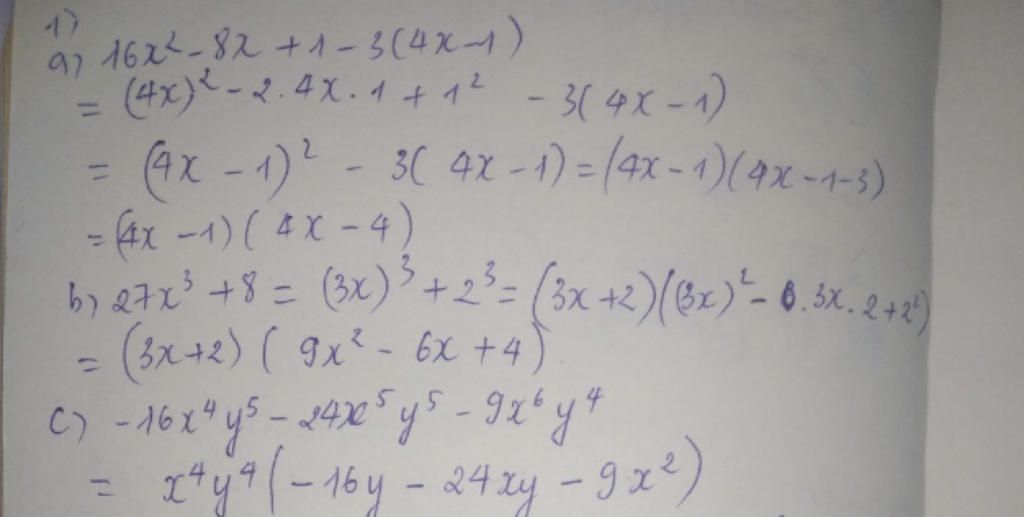 1)
a) 16x² - 8x + 1 - 3(4x - 1)
= (4x)² - 2.4x.1 + 1² - 3(4x - 1)
= (4x - 1)² - 3(4x - 1) = (4x - 1)(4x - 1 - 3)
= (4x - 1)(4x - 4)
b) 27x³ + 8 = (3x)³ + 2³ = (3x + 2)((3x)² - .3x.2 + 2²)
= (3x + 2)(9x² - 6x + 4)
c) -16x⁴y⁵ - 24x⁵y⁵ - 9x⁶y⁴
= x⁴y⁴(-16y - 24xy - 9x²)